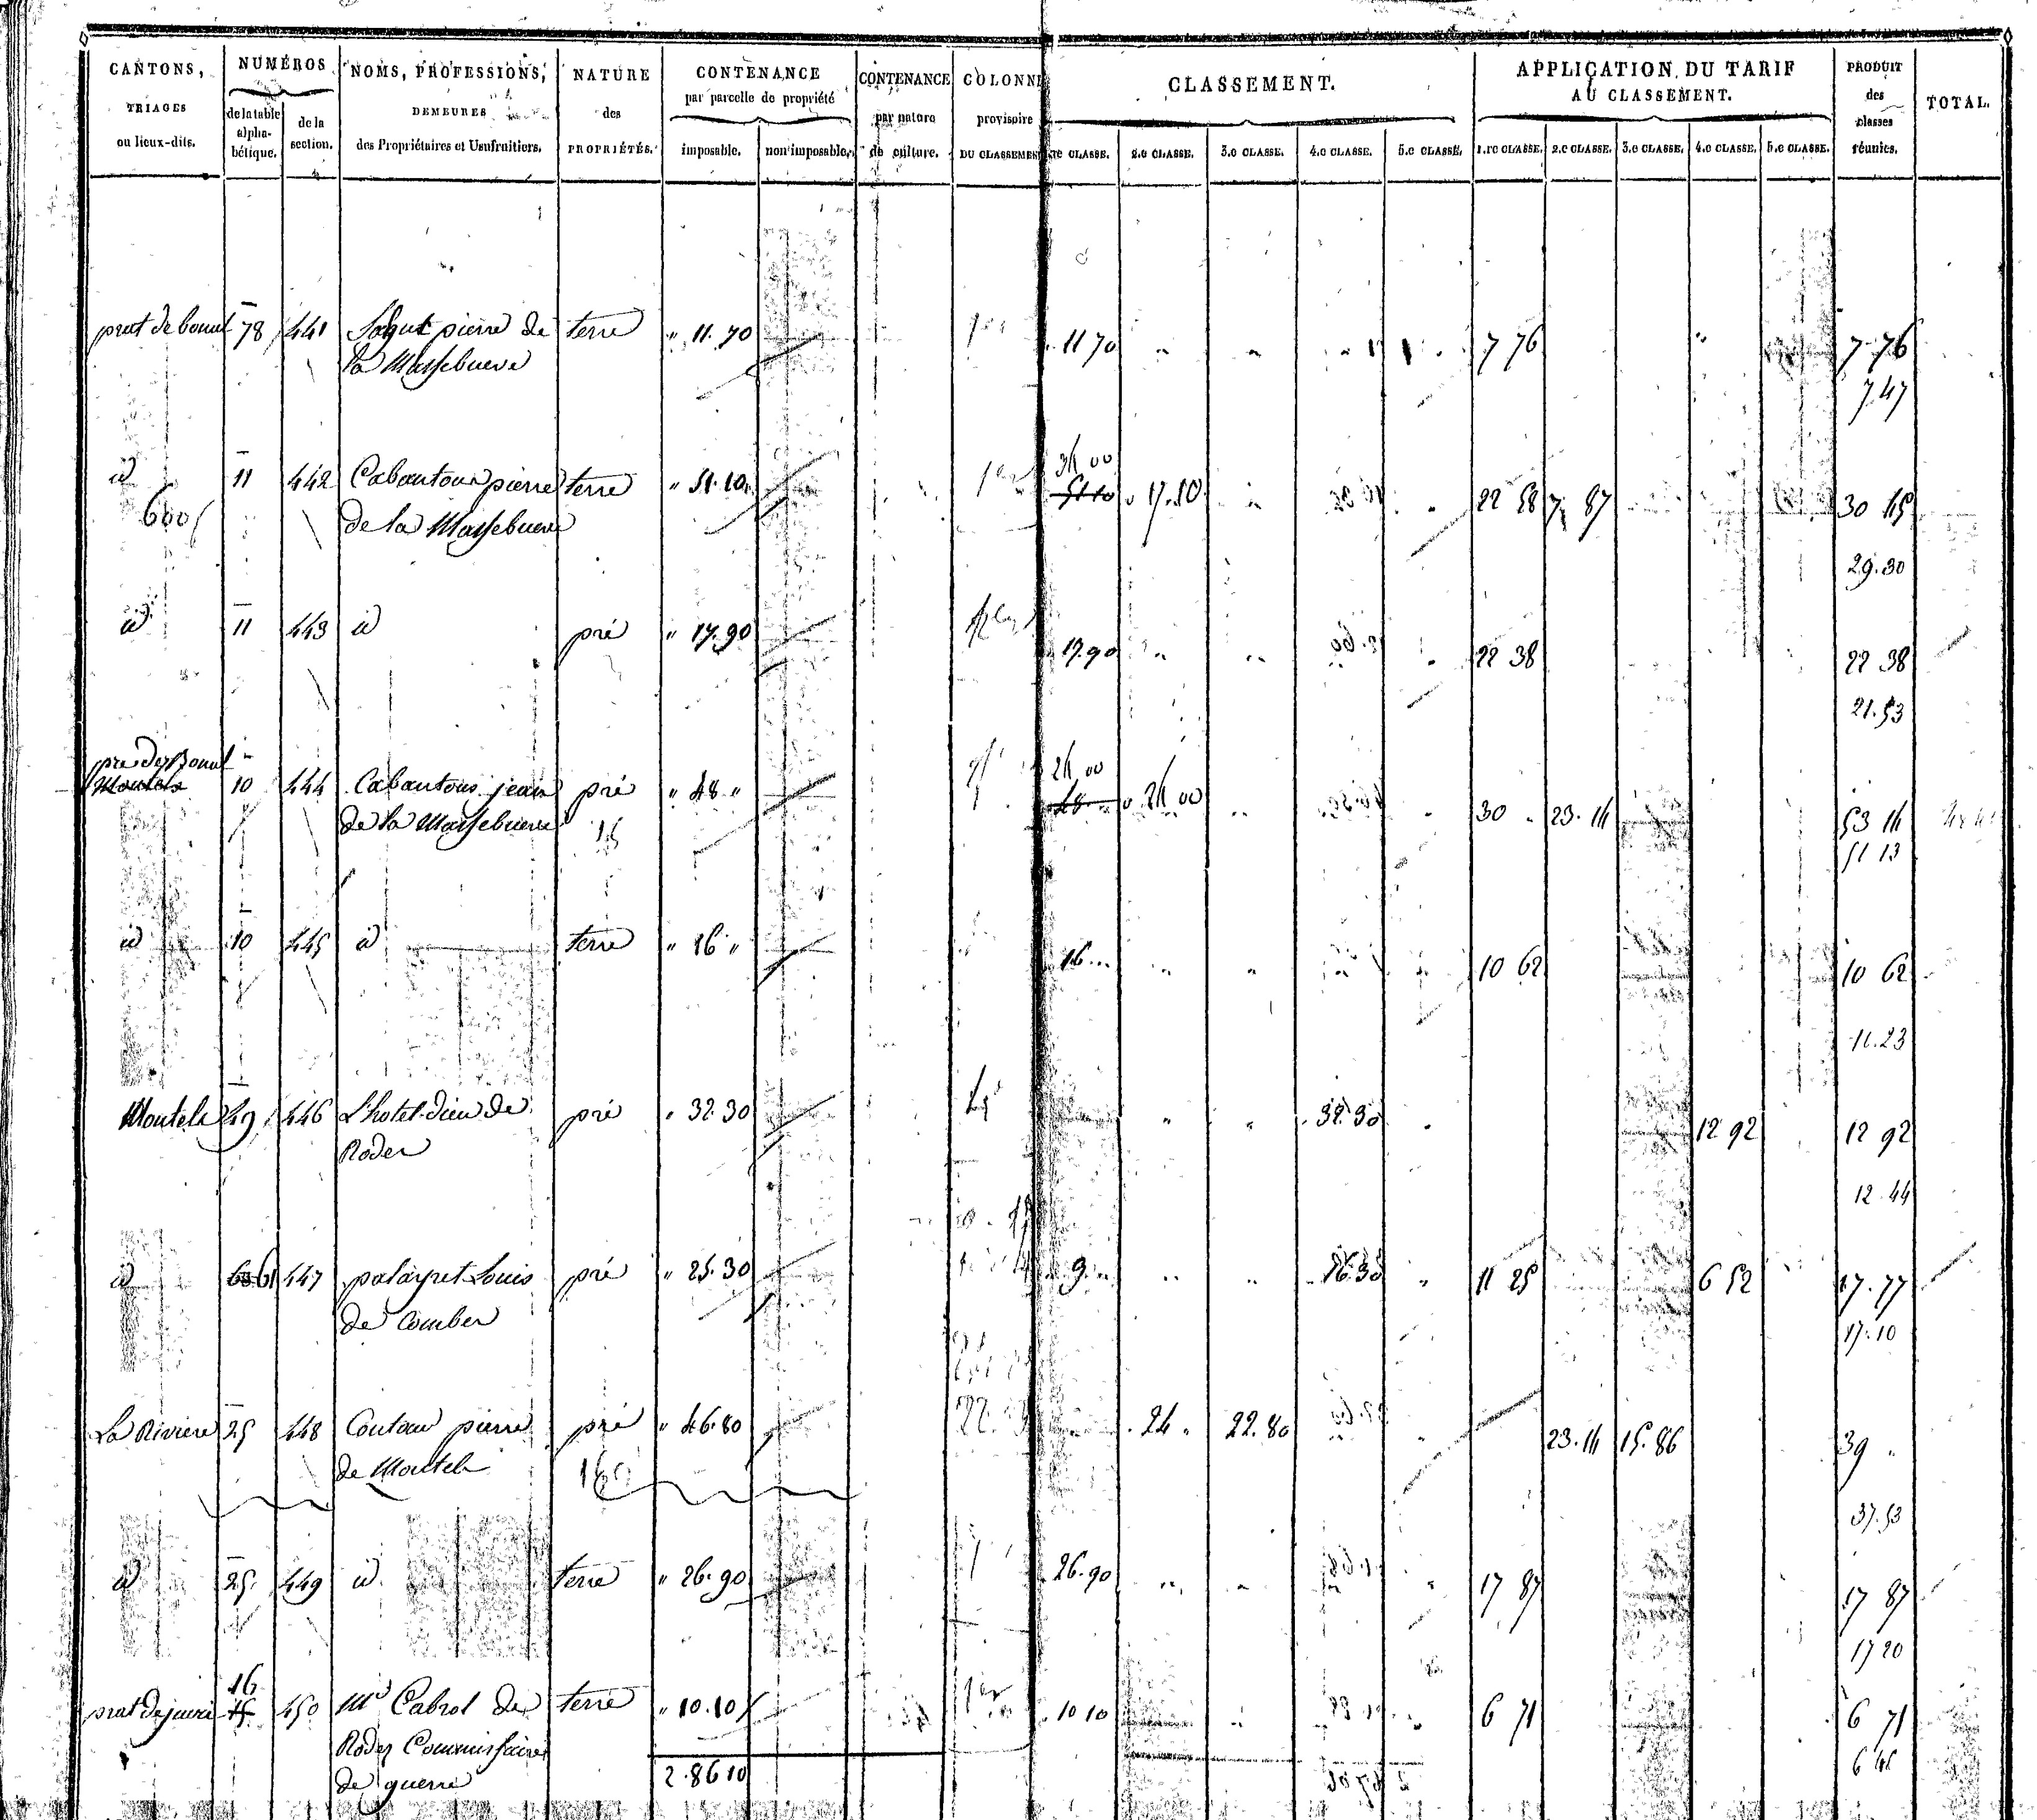 CANTONS, TRIAGES ou lieux-dits.
NUMÉROS de la table alpha-bétique. de la section.
NOMS, PROFESSIONS, DEMEURES des Propriétaires et Usufruitiers.
NATURE des PROPRIÉTÉS.
CONTENANCE par parcelle de propriété imposable. non imposable.
CONTENANCE par nature de culture.
COLONNE provisoire DU CLASSEMENT
CLASSEMENT. 1.re CLASSE. 2.e CLASSE. 3.e CLASSE. 4.e CLASSE. 5.e CLASSE.
APPLICATION DU TARIF AU CLASSEMENT. 1.re CLASSE. 2.e CLASSE. 3.e CLASSE. 4.e CLASSE. 5.e CLASSE.
PRODUIT des classes réunies.
TOTAL.
78 441 pierre de terre " 11.70 11 70 7 76 7 76
la Massebuere
7.47
34 00
id 11 442 Cabantous pierre terre " 51.10 51 10 17.10 22 58 7 87 30 45
600
de la Massebuere
29.30
id 11 443 id pré " 17.90 17.90 22 38 22 38
21.53
24 00
Moutels 10 444 Cabantous jean pré " 48 " 48 24 00 30 23.14 53 14
de la Massebuere
51 13
id 10 445 id terre " 16 " 16 10 62 10 62
11.23
Moutels 49 446 L'hotel-dieu de pré " 32.30 32.30 12 92 12 92
Rodez
12.44
id 60 61 447 palayret Louis pré " 25.30 9 16.30 11 25 6 52 17.77
de Combes
17.10
La Riviere 25 448 Coutou pierre pré " 46.80 24 " 22.80 23.14 15.86 39 "
de Moutels
37.53
id 25 449 id terre " 26.90 26.90 17 87 17 87
17 20
16
15 450 Mr Cabrol de terre " 10.10 10 10 6 71 6 71
Rodez Commissaire
6 46
de guerre
2.86 10